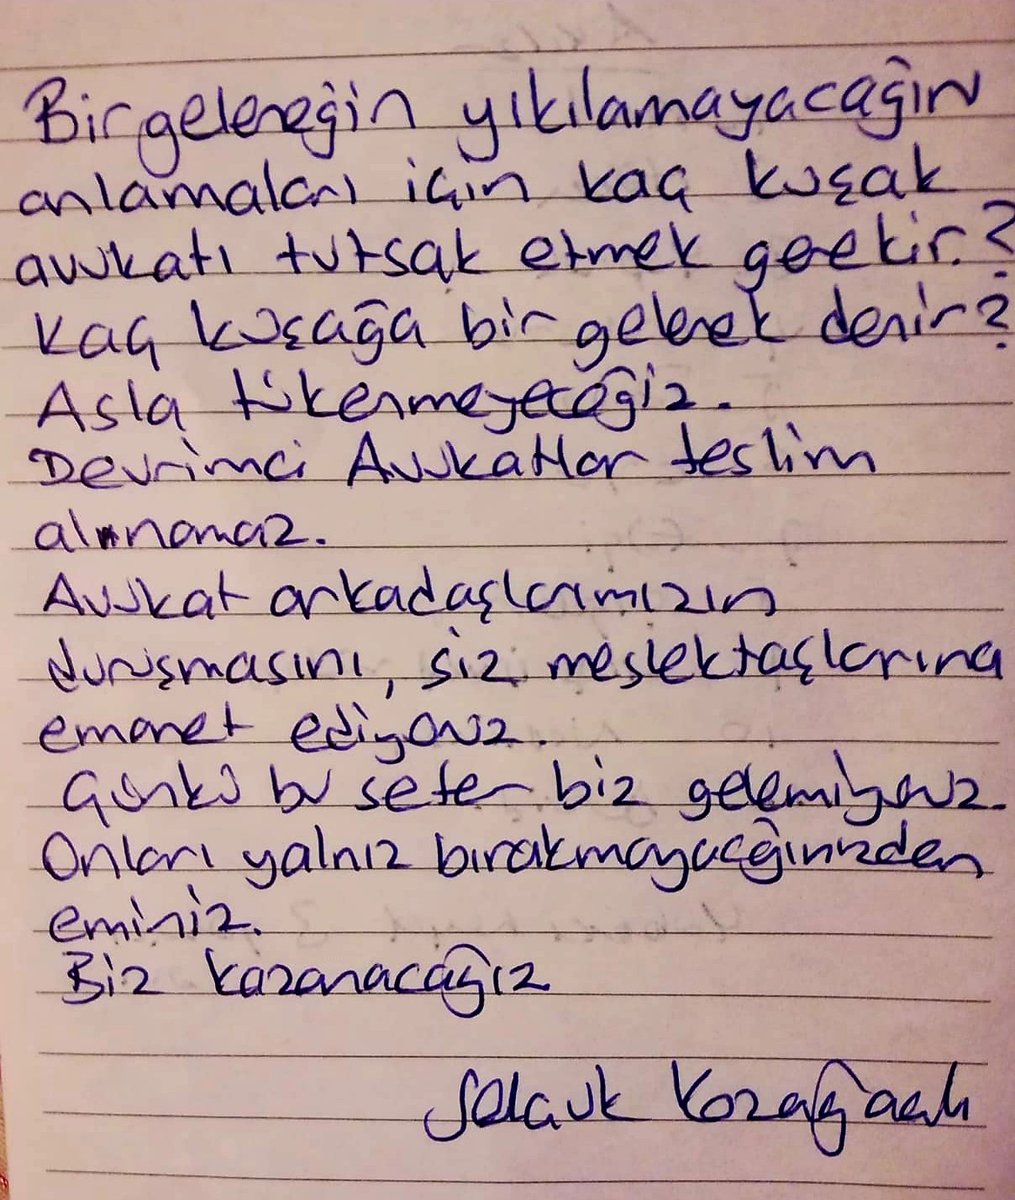 Bir geleneğin yıkılamayacağını
anlamaları için kaç kuşak
avukatı tutsak etmek gerekir?
Kaç kuşağa bir gelenek denir?
Asla tükenmeyeceğiz.
Devrimci Avukatlar teslim
alınamaz.
Avukat arkadaşlarımızın
duruşmasını, siz meslektaşlarına
emanet ediyoruz.
Çünkü bu sefer biz gelemiyoruz.
Onları yalnız bırakmayacağınızdan
eminiz.
Biz kazanacağız
Selçuk Kozağaçlı